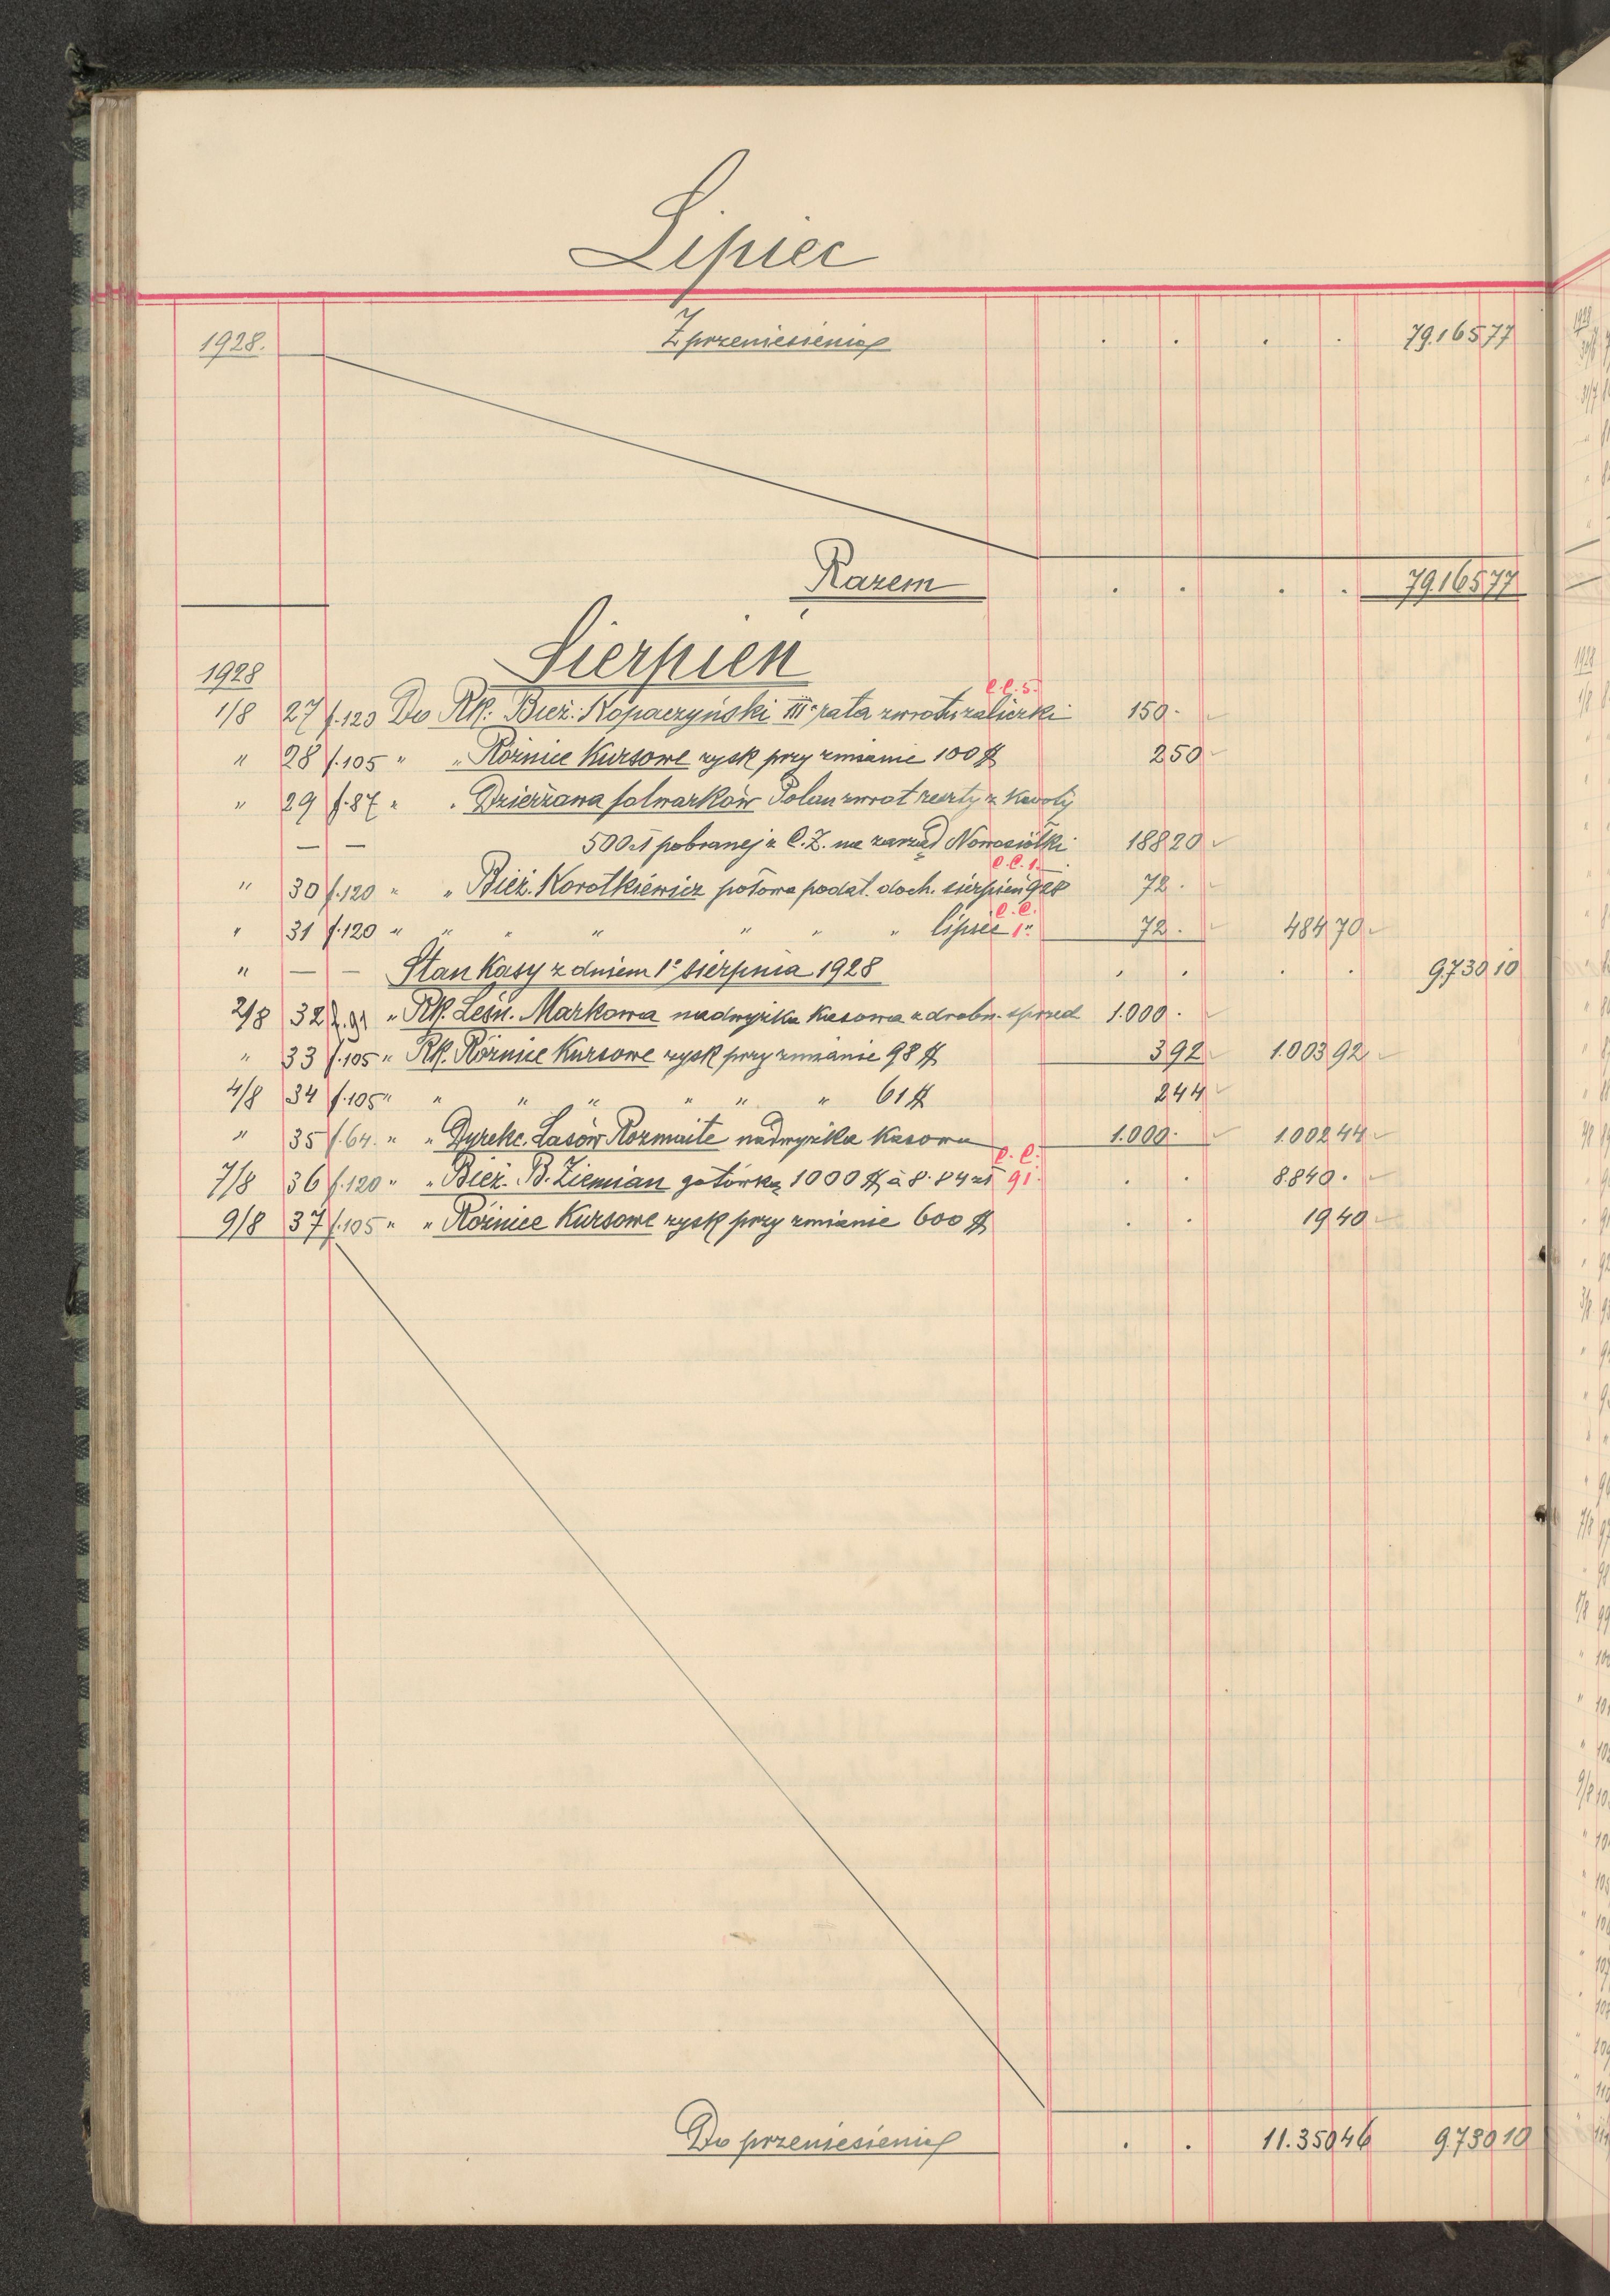 Lipiec
1928. Z przeniesienia . . . . 79.165 77
Razem . . . . 79.165 77
Sierpień
1928
C.C.5.
1/8 27 f.123 Do Rk. Bież. Kopaczyński III. rata zwrotu zaliczki 150 -
" 28 f.105 " " Różnice Kursowe zysk przy zmianie 100 $ 2 50
" 29 f.87 " " Dzierżawa folwarków Polan zwrot reszty z Kwoty
— — 500 zł pobranej z C.Z. na zarząd Nowosiółki 188 20
C.C.1.
" 30 f.120 " " Bież. Korotkiewicz połowa podat. doch. sierpień 928 72 .
C.C.
" 31 f.120 " " " " " " " lipiec 1. 72 . 484 70
" — — Stan Kasy z dniem 1º sierpnia 1928 . . . . 9.730 10
2/8 32 f.91 " Rk. Leśn. Markowa nadwyżka kasowa z drobn. sprzed 1.000 .
" 33 f.105 " Rk. Różnice Kursowe zysk przy zmianie 98 $ 3 92 1.003 92
4/8 34 f.105 " " " " " " " 61 $ 2 44
" 35 f.64. " " Dyrekc. Lasów Rozmaite nadwyżka Kasowa 1.000 . 1.002 44
C.C.
7/8 36 f.120 " " Bież. B. Ziemian gotówką 1000 $ à 8.84 zł 91. . . 8.840 .
9/8 37 f.105 " " Różnice Kursowe zysk przy zmianie 600 $ . . 19 40
Do przeniesienia . . 11.350 46 9.730 10